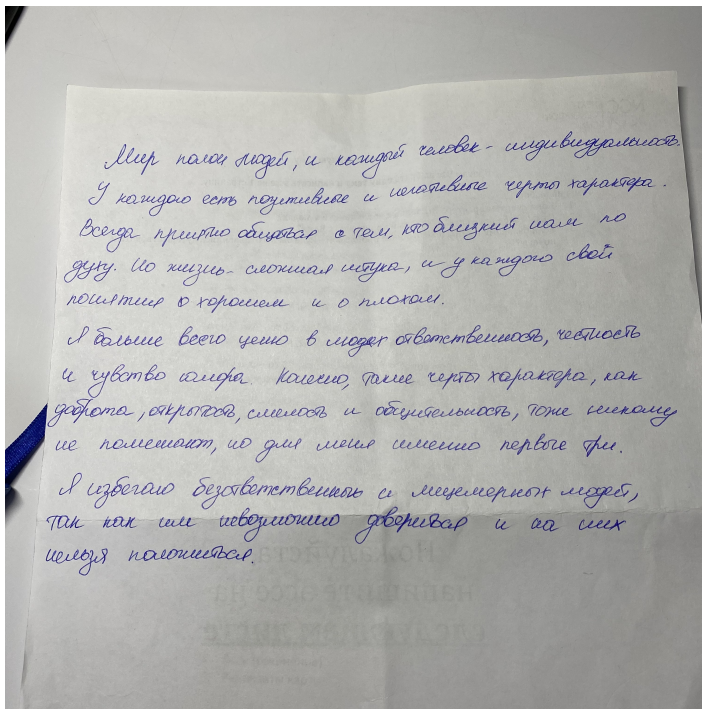 Мир полон людей, и каждый человек - индивидуальность.
У каждого есть позитивные и негативные черты характера.
Всегда приятно общаться с тем, кто близкий нам по
духу. Но жизнь - сложная штука, и у каждого свои
понятия о хорошем и о плохом.
Я больше всего ценю в людях ответственность, честность
и чувство юмора. Конечно, такие черты характера, как
доброта, открытость, смелость и общительность, тоже никому
не помешают, но для меня именно первые три.
Я избегаю безответственных и лицемерных людей,
так как им невозможно довериться и на них
нельзя положиться.
Пожалуйста
напишите эссе на
следующем листе